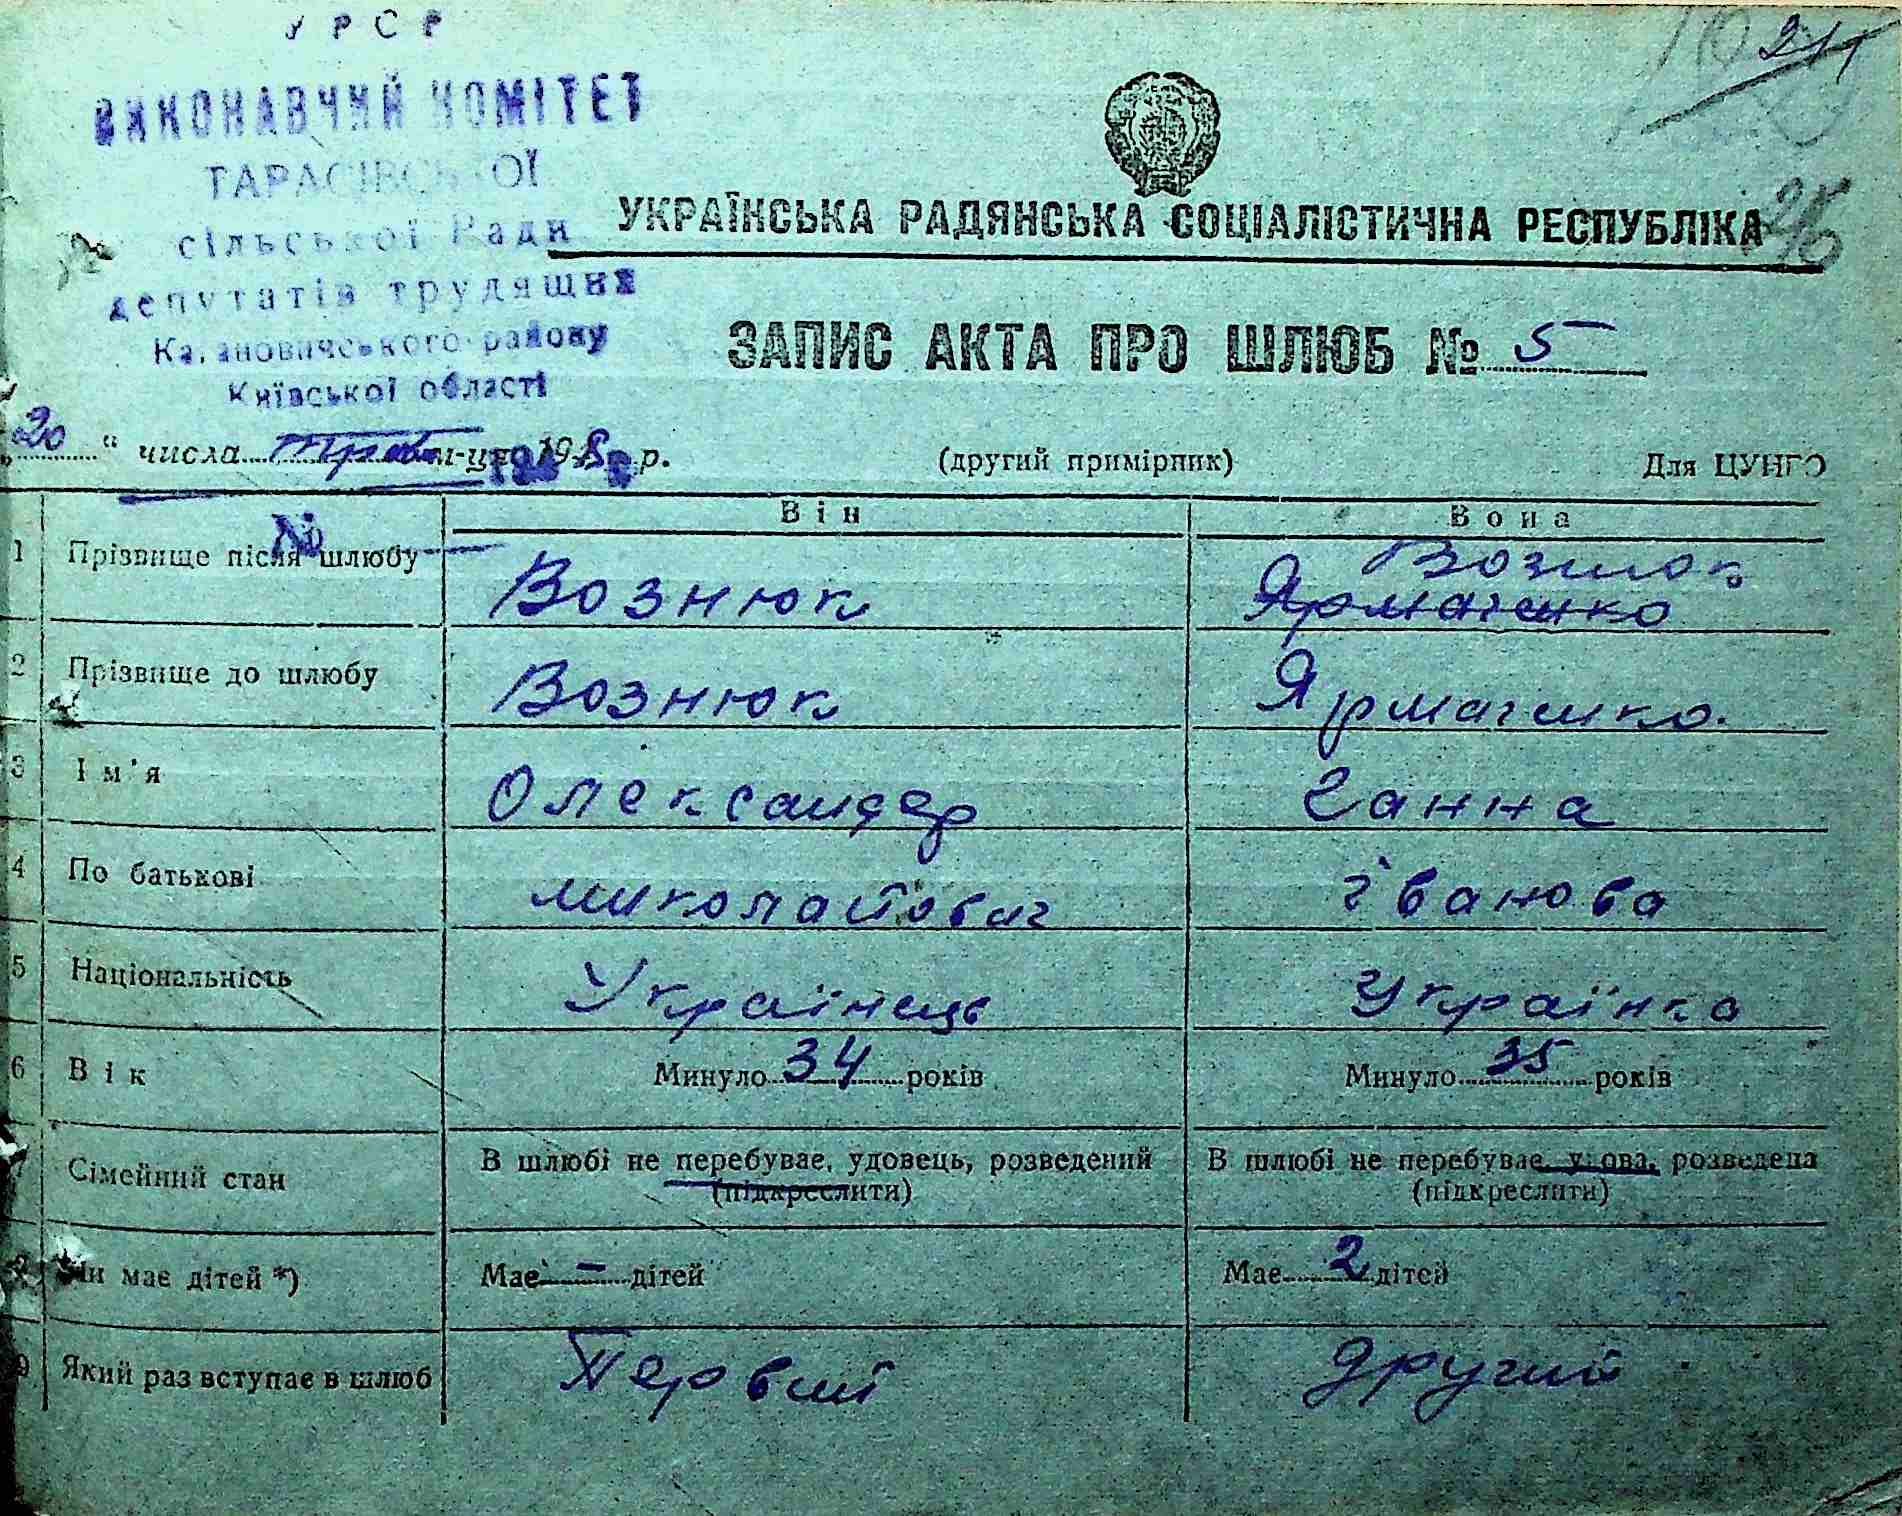 УРСР
ВИКОНАВЧИЙ КОМІТЕТ
ТАРАСІВСЬКОЇ
сільської Ради
депутатів трудящих
Кагановичського району
Київської області
21
26
УКРАЇНСЬКА РАДЯНСЬКА СОЦІАЛІСТИЧНА РЕСПУБЛІКА
ЗАПИС АКТА ПРО ШЛЮБ № 5
„20“ числа м-ця 194 р.
(другий примірник)
Для ЦУНГО
Він
Вона
№
1 Прізвище після шлюбу Вознюк Вознюк
Ярмаченко
2 Прізвище до шлюбу Вознюк Ярмаченко.
3 Ім'я Олександер Ганна
4 По батькові миколайович Іванова
5 Національність Українець Українка
6 Вік Минуло 34 років Минуло 35 років
7 Сімейний стан В шлюбі не перебуває, удовець, розведений В шлюбі не перебуває, удова, розведена
(підкреслити) (підкреслити)
8 Чи має дітей *) Має – дітей Має 2 дітей
9 Який раз вступає в шлюб Первий другий